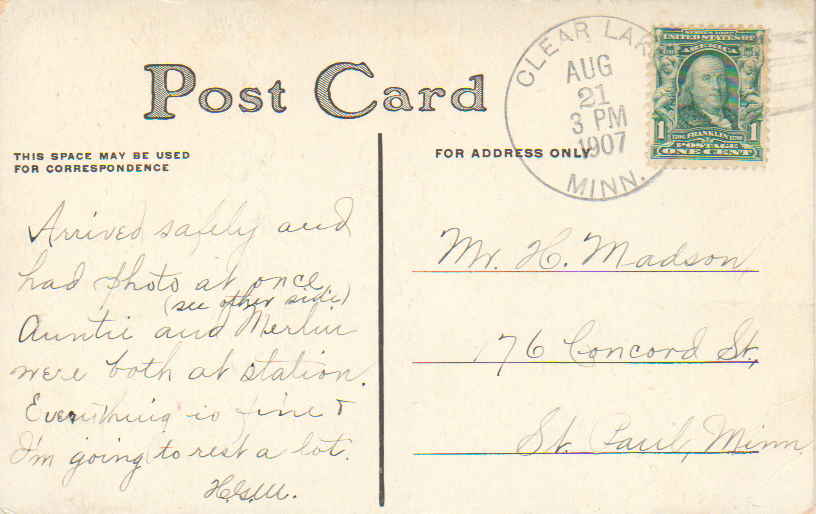 Post Card
CLEAR LAKE
AUG
21
3 PM
1907
MINN.
SERIES 1902
UNITED STATES OF
AMERICA
1 FRANKLIN 1
POSTAGE
ONE CENT
THIS SPACE MAY BE USED
FOR CORRESPONDENCE
FOR ADDRESS ONLY.
Arrived safely and
had photo at once.
(see other side)
Auntie and Merlin
were both at station.
Everything is fine &
I'm going to rest a lot.
Mr. H. Madson,
176 Concord St.,
St. Paul, Minn.